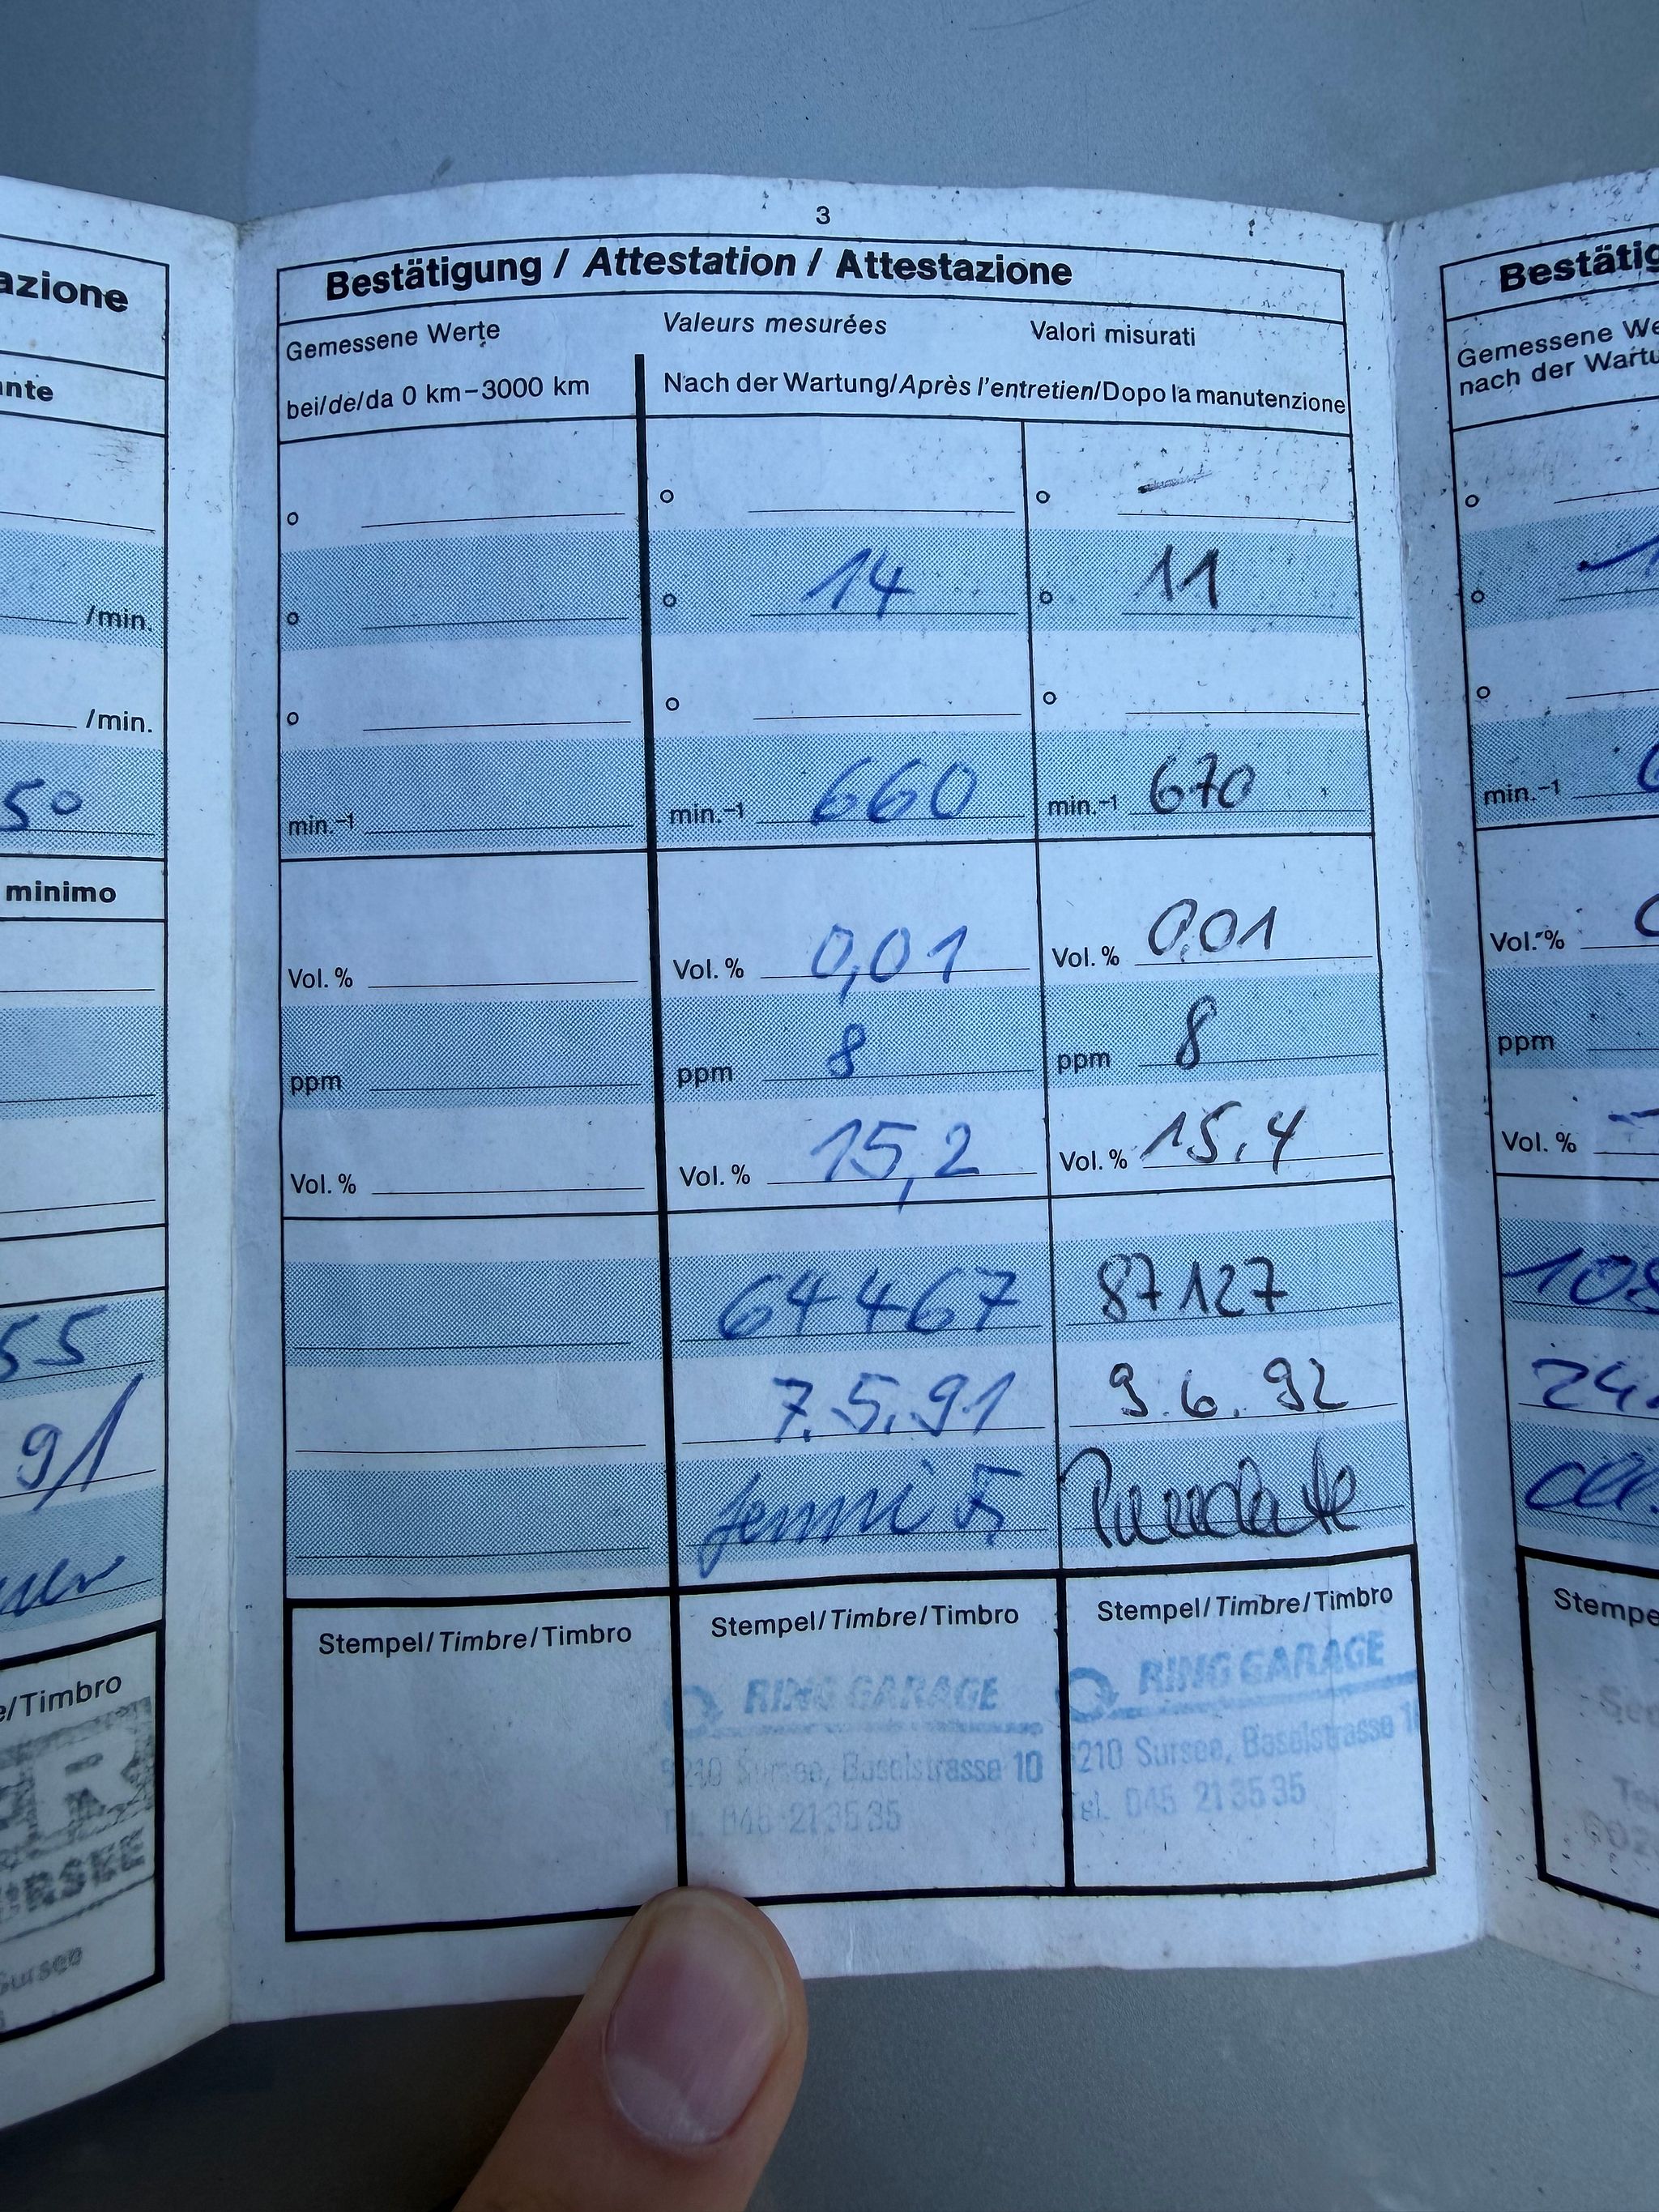 azione
nte
/min.
/min.
50
minimo
55
91
e/Timbro
Sursee
3
Bestätigung / Attestation / Attestazione
Gemessene Werte Valeurs mesurées Valori misurati
bei/de/da 0 km–3000 km Nach der Wartung/Après l'entretien/Dopo la manutenzione
o o o –
o o 14 o 11
o o o
min.⁻¹ min.⁻¹ 660 min.⁻¹ 670
Vol. % Vol. % 0,01 Vol. % 0.01
ppm ppm 8 ppm 8
Vol. % Vol. % 15,2 Vol. % 15.4
64467 87127
7.5.91 9.6.92
Jenni F.
Stempel/Timbre/Timbro Stempel/Timbre/Timbro Stempel/Timbre/Timbro
RING GARAGE RING GARAGE
6210 Sursee, Baselstrasse 10 6210 Sursee, Baselstrasse 1
Tel. 045 21 35 35 Tel. 045 21 35 35
Bestätig
Gemessene We
nach der Wartu
o
o
o
min.⁻¹
Vol. %
ppm
Vol. %
108
24.
Stempe